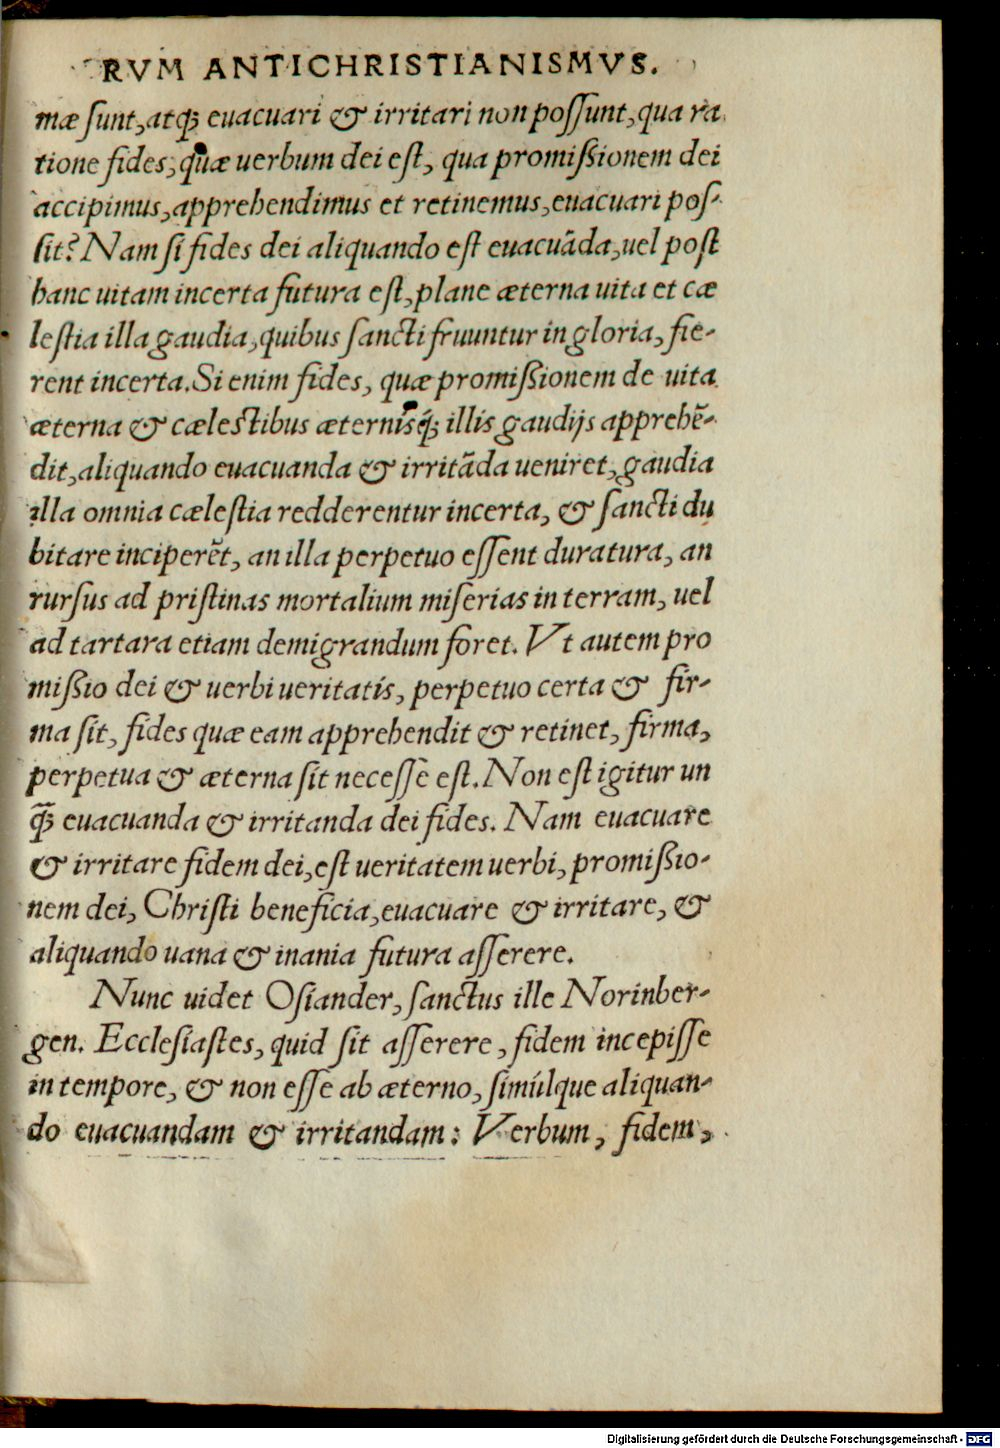 RVM ANTICHRISTIANISMVS.
mæ ſunt, atq́ꝫ euacuari & irritari non poſſunt, qua ra
tione fides, quæ uerbum dei eſt, qua promiſſionem dei
accipimus, apprehendimus et retinemus, euacuari poſ-
ſit? Nam ſi fides dei aliquando eſt euacuāda, uel poſt
hanc uitam incerta futura eſt, plane æterna uita et cæ
leſtia illa gaudia, quibus ſancti fruuntur in gloria, fie-
rent incerta. Si enim fides, quæ promiſſionem de uita
æterna & cæleſtibus æternisq́ꝫ illis gaudijs apprehē-
dit, aliquando euacuanda & irritāda ueniret, gaudia
illa omnia cæleſtia redderentur incerta, & ſancti du
bitare inciperēt, an illa perpetuo eſſent duratura, an
rurſus ad priſtinas mortalium miſerias in terram, uel
ad tartara etiam demigrandum foret. Vt autem pro
miſſio dei & uerbi ueritatis, perpetuo certa & fir-
ma ſit, fides quæ eam apprehendit & retinet, firma,
perpetua & æterna ſit neceſſe eſt. Non eſt igitur un
q̃ꝫ euacuanda & irritanda dei fides. Nam euacuare
& irritare fidem dei, eſt ueritatem uerbi, promiſſio-
nem dei, Chriſti beneficia, euacuare & irritare, &
aliquando uana & inania futura aſſerere.
Nunc uidet Oſiander, ſanctus ille Norinber-
gen. Eccleſiaſtes, quid ſit aſſerere, fidem incepiſſe
in tempore, & non eſſe ab æterno, ſimúlque aliquan-
do euacuandam & irritandam: Verbum, fidem,
Digitalisierung gefördert durch die Deutsche Forschungsgemeinschaft - DFG